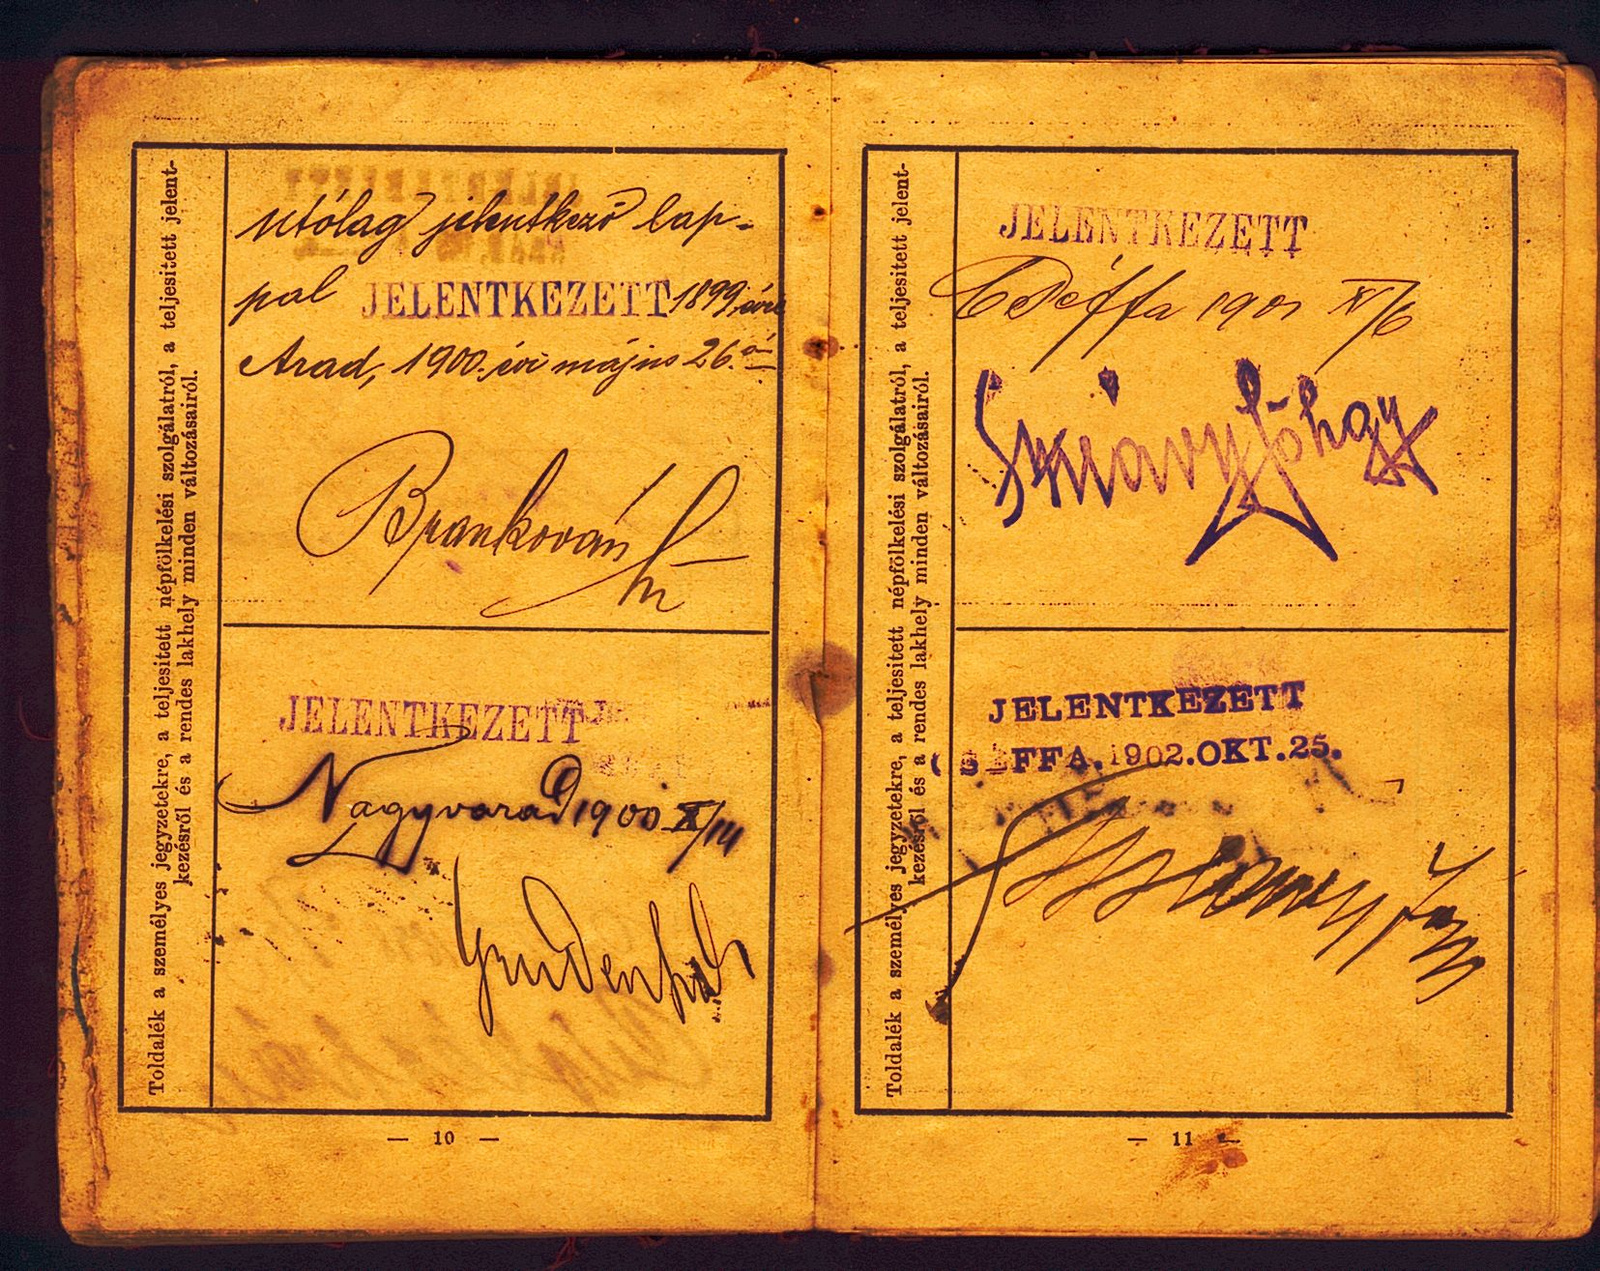 Toldalék a személyes jegyzetekre, a teljesitett népfölkelési szolgálatról, a teljesitett jelent-
kezésről és a rendes lakhely minden változásairól.
utólag jelentkező lap-
pal JELENTKEZETT 1899. évre
Arad, 1900. évi május 26.án
Brankován
JELENTKEZETT
Nagyvarad 1900 X/
— 10 —
Toldalék a személyes jegyzetekre, a teljesitett népfölkelési szolgálatról, a teljesitett jelent-
kezésről és a rendes lakhely minden változásairól.
JELENTKEZETT
1901 X/6
JELENTKEZETT
FFA. 1902. OKT. 25.
— 11 —